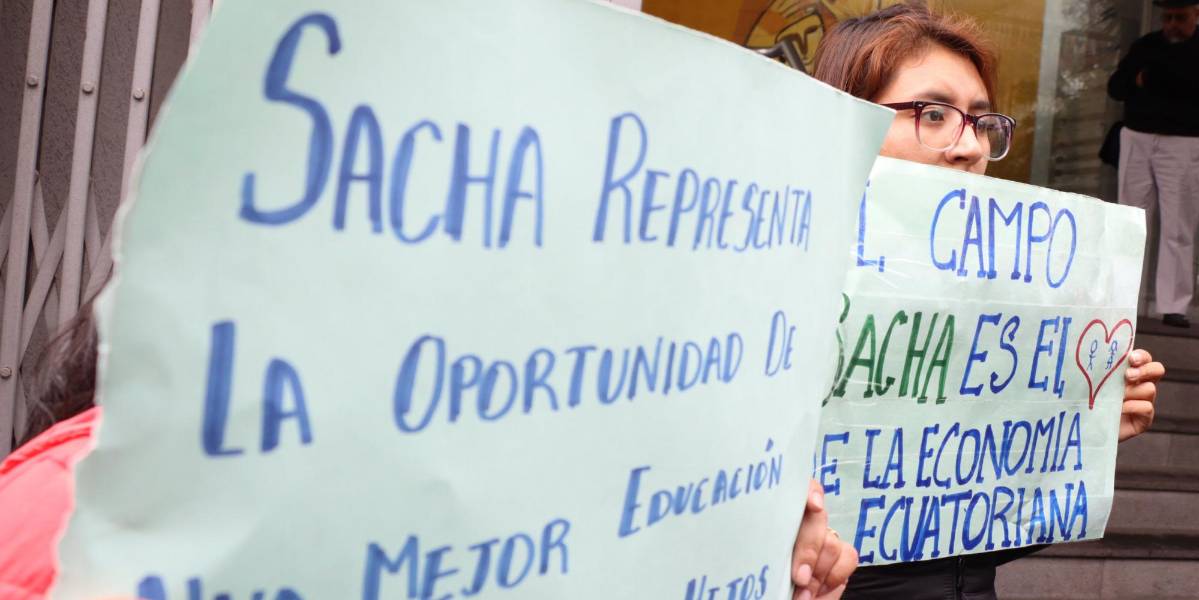 SACHA REPRESENTA
LA OPORTUNIDAD DE
UNA MEJOR EDUCACIÓN
L CAMPO
SACHA ES EL
E LA ECONOMIA
ECUATORIANA